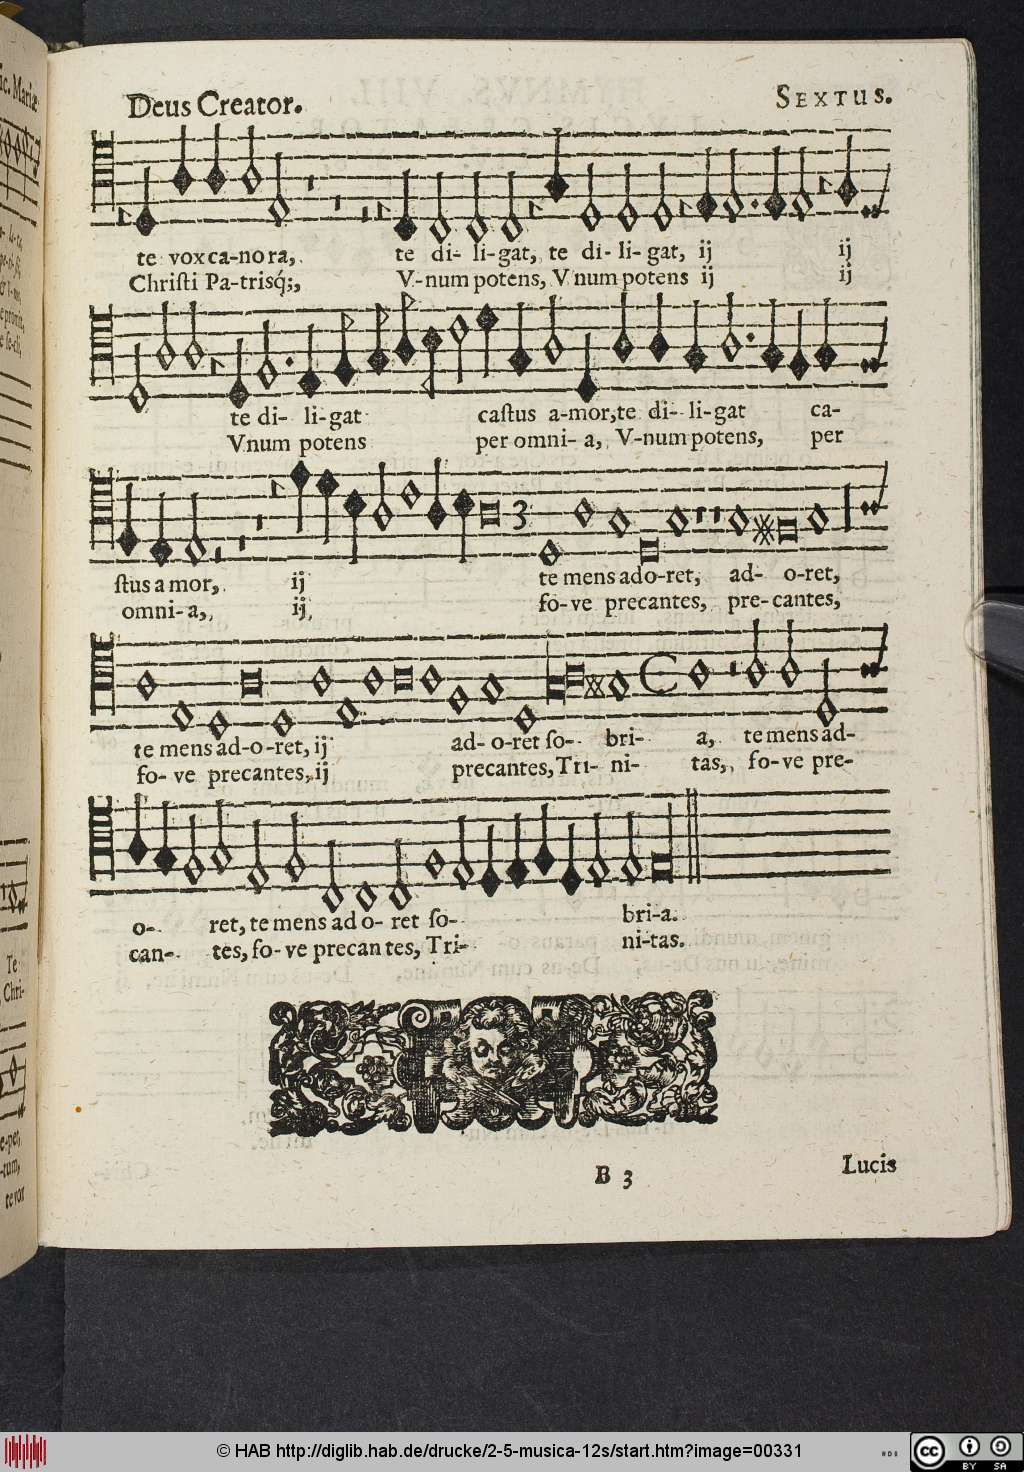 Deus Creator. SEXTUS.
te vox ca-no ra, te di- li-gat, te di- li- gat, ij ij
Chriſti Pa-trisq́;, V-num potens, V num potens ij ij
te di- li-gat caſtus a-mor, te di- li-gat ca-
Vnum potens per omni- a, V-num potens, per
ſtus a mor, ij te mens ado-ret, ad- o-ret,
omni-a, ij, fo-ve precantes, pre-cantes,
te mens ad-o-ret, ij ad- o-ret ſo- bri- a, te mens ad-
fo- ve precantes, ij precantes, Tri- ni- tas, fo-ve pre-
o- ret, te mens ad o- ret ſo- bri-a.
can- tes, fo- ve precan tes, Tri- ni-tas.
B 3 Lucis
© HAB http://diglib.hab.de/drucke/2-5-musica-12s/start.htm?image=00331
cc BY SA